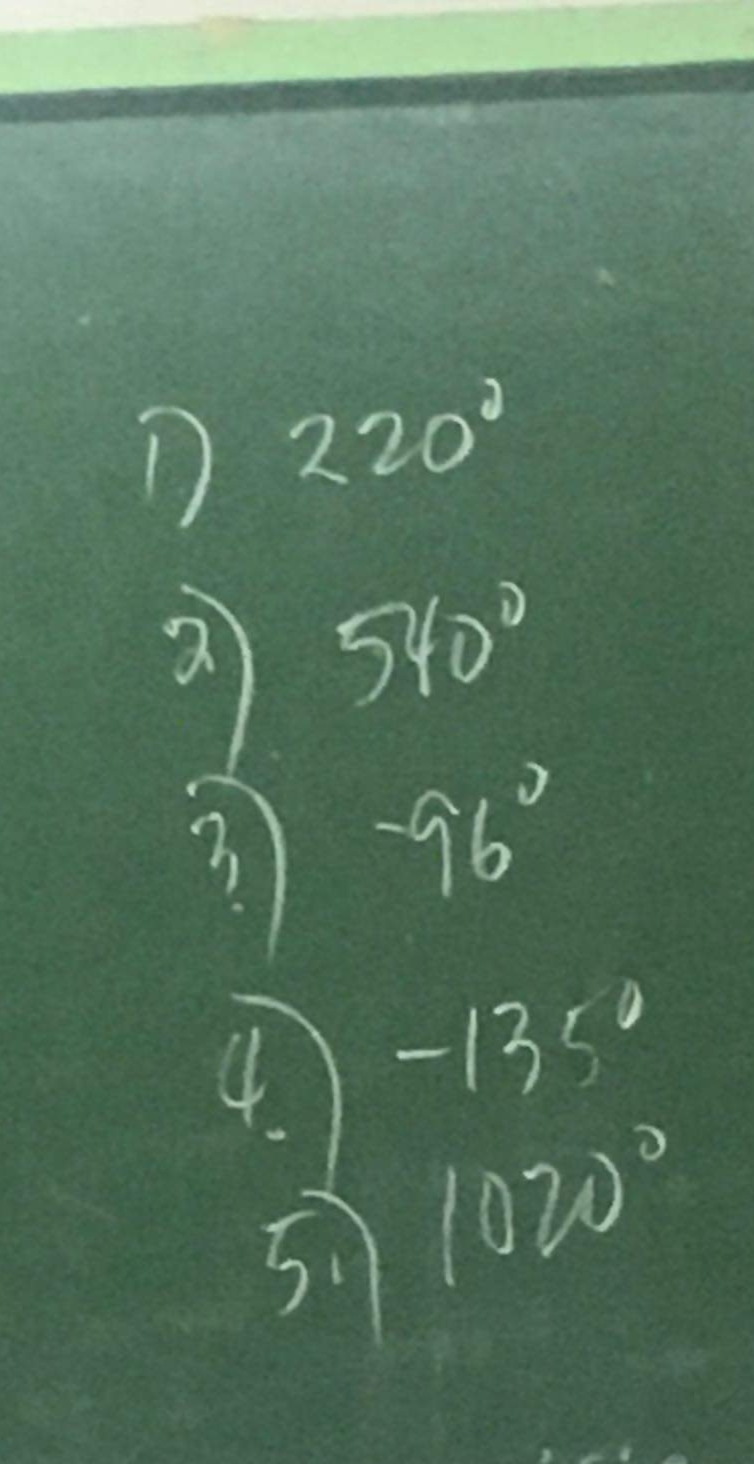 1) 220°
2) 540°
3.) -96°
4.) -135°
5.) 1020°